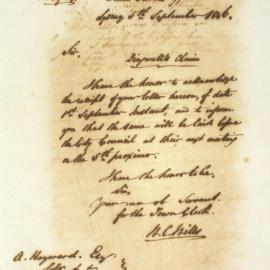 Sydney 5th September 1846.
Sir,
Dingwall's Claim
I have the honor to acknowledge
the receipt of your letter hereon, of date
1st September Instant, and to inform
you that the same will be laid before
the City Council at their next meeting
on the 5th proximo.
I have the honor to be
Sir,
Your most Servant
for the Town Clerk
A. Hayward. Esq